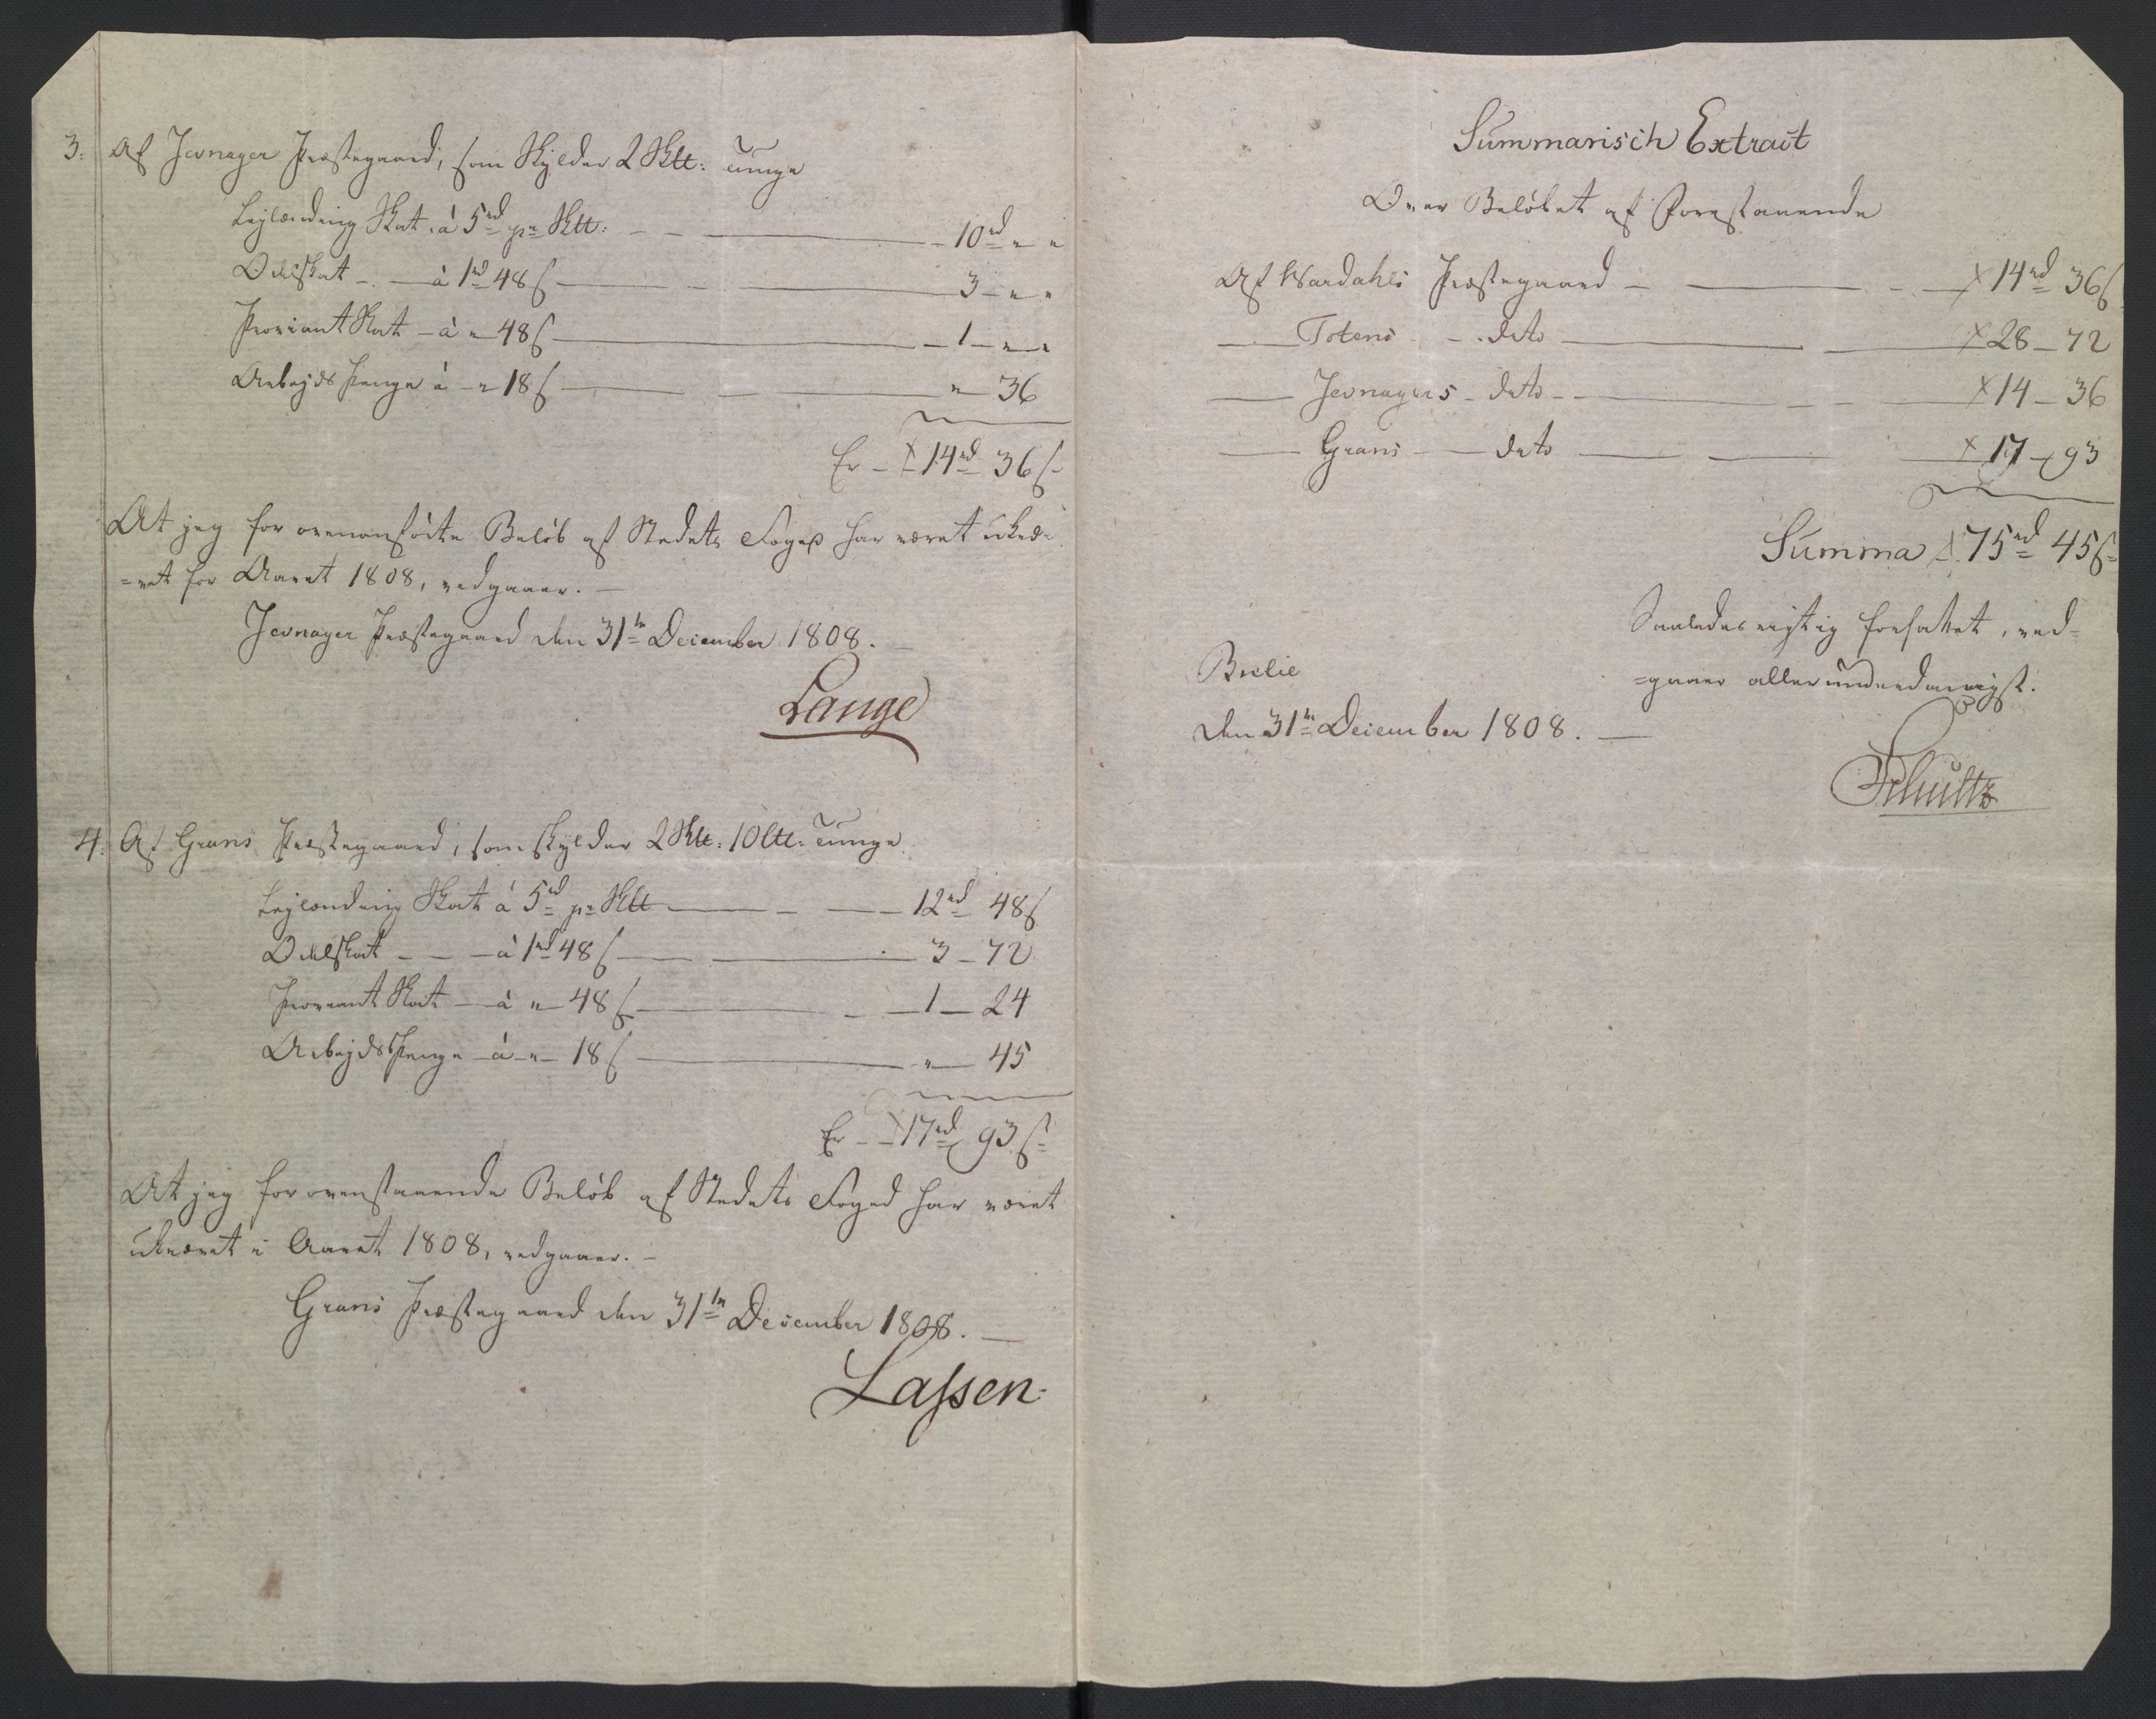 3. Af Jevnager Præstegaard, som skylder 2 Sktt: tunge
Lejlænding Skat à 5rd pr Sktt: 10rd " "
Odelskat - à 1rd 48 ſ 3 - " "
Proviant Skat - à " 48 ſ 1 - " "
Arbejds Penge à - " 18 ſ " 36
Er - 14rd 36 ſ
At jeg for ovenanførte Beløb af Stedets Foged har været
=vet for Aaret 1808, vedgaaer. -
Jevnager Præstegaard den 31te December 1808.
Lange
4. Af Grans Præstegaard, som skylder 2 Sktt: 10 ltt: tunge
Lejlænding Skat à 5rd pr Sktt 12rd 48 ſ
Odelskat - - à 1rd 48 ſ 3 - 72
Proviant Skat - à " 48 ſ 1 - 24
Arbejds Penge - à - " 18 ſ " 45
Er - 17rd 93 ſ
At jeg for ovenstaaende Beløb af Stedets Foged har været
ukrævet i Aaret 1808, vedgaaer. -
Grans Præstegaard den 31te December 1808. -
Lassen
Summarisch Extract
Over Beløbet af Forestaaende
Af Wardahls Præstegaard - 14rd 36 ſ
Totens - dito 28 - 72
Jevnagers - dito - 14 - 36
Grans - dito 17 - 93
Summa 75rd 45 ſ
Saaledes rigtig forfattet, ved=
=gaaer allerunderdanigst.
Brelie
den 31te December 1808. -
Schultz